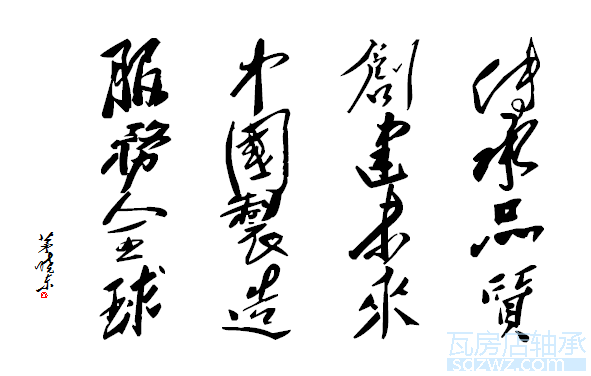 傳承品質
創建未來
中國製造
服務全球
瓦房店轴承
sdzwz.com